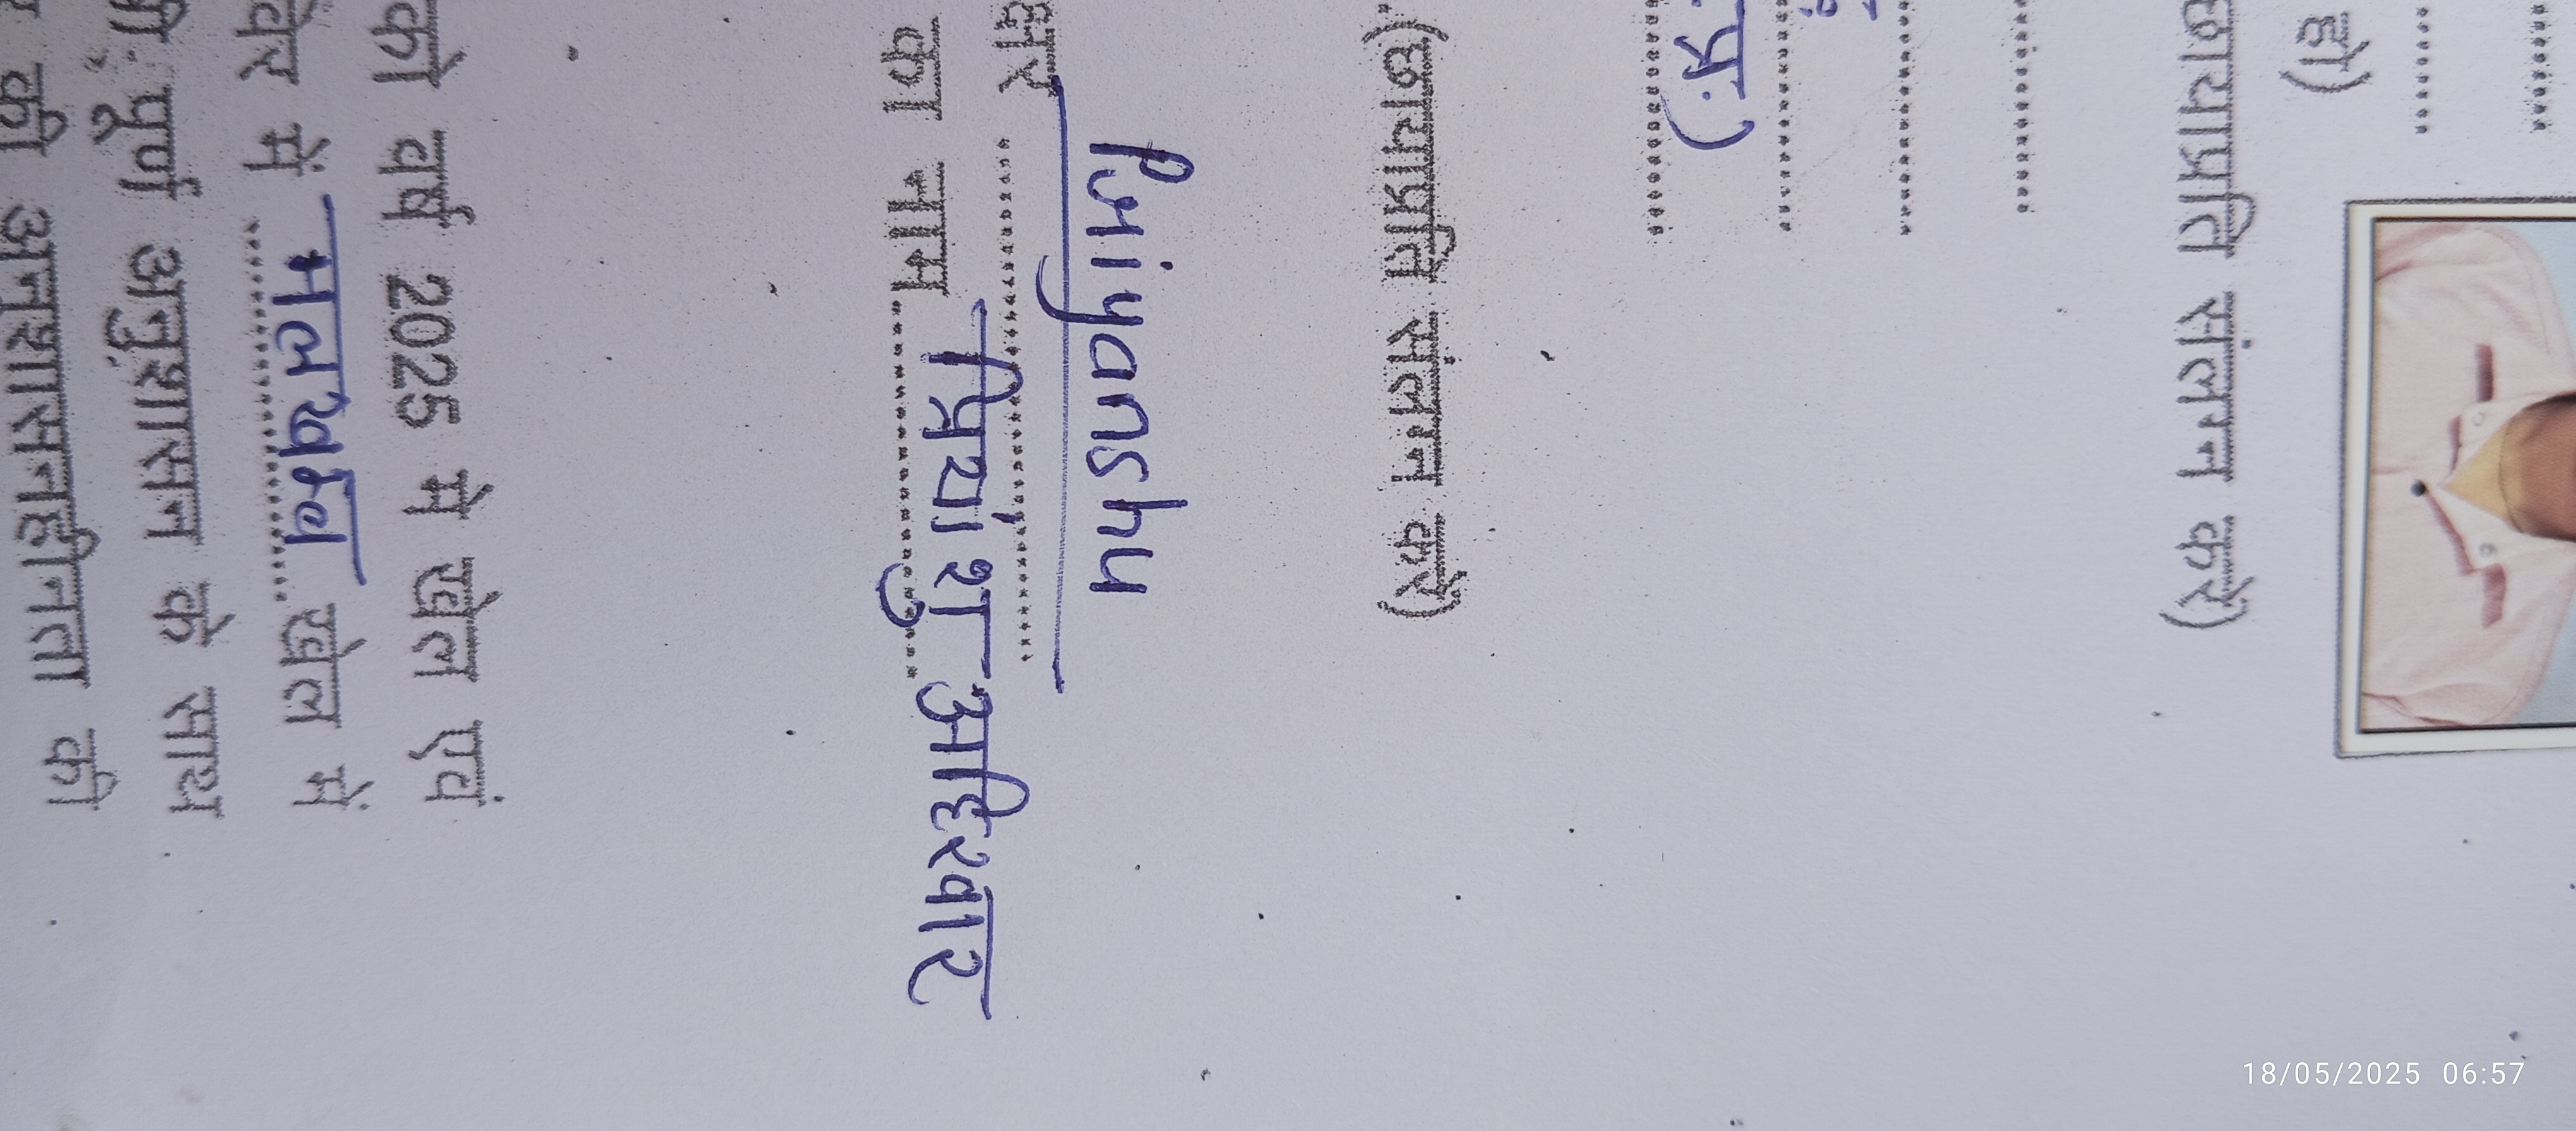 हो)
छायाप्रति संलग्न करें)
म.प्र.)
(छायाप्रति संलग्न करें)
Priyanshu
का नाम प्रियांशु अहिरवार
को वर्ष 2025 मे खेल एवं
में मलखम्ब खेल में
पूर्ण अनुशासन के साथ
की अनुशासनहीनता की
18/05/2025 06:57